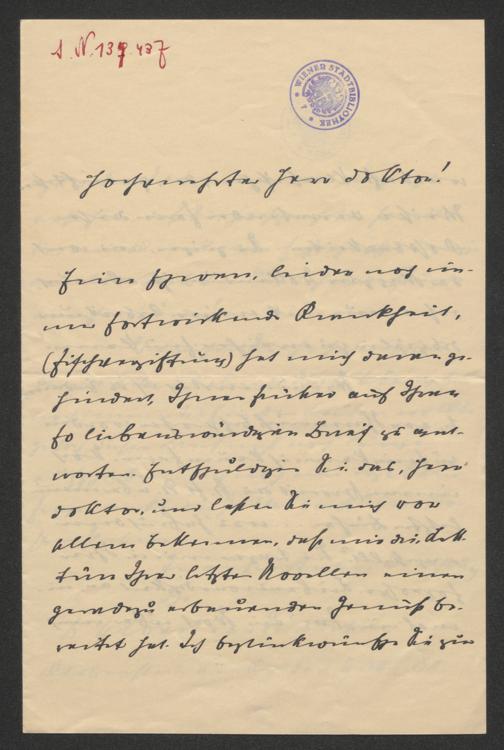 I. N. 139.437
WIENER STADTBIBLIOTHEK
Hochverehrter Herr Doktor!
Eine schwere, leider noch im-
mer fortwirkende Krankheit,
(Fischvergiftung) hat mich daran ge-
hindert, Ihnen früher auf Ihren
so liebenswürdigen Brief zu ant-
worten. Entschuldigen Sie das, Herr
Doktor, und lassen Sie mich vor
allem bekennen, daß mir die Lek-
türe Ihrer letzten Novellen einen
geradezu erbauenden Genuß be-
reitet hat. Ich beglückwünsche Sie zur